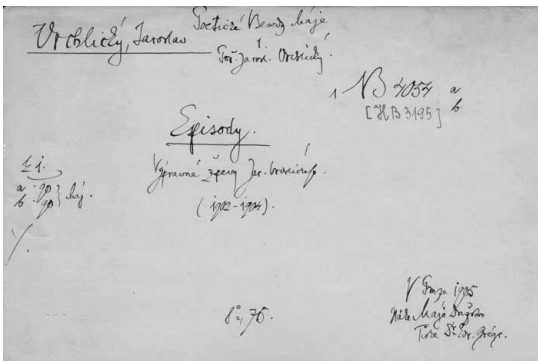 Vrchlický, Jaroslav
Poetické Besedy Máje
1
Poř. Jarosl. Vrchlický.
1 NB 4054 a
b
[HB 3195]
Episody.
Výpravné zpěvy Jar. Vrchlického.
(1902-1904).
a
b
8° 76.
V Praze 1905
Máje
Tiskem Dr. Ed. Grégr.